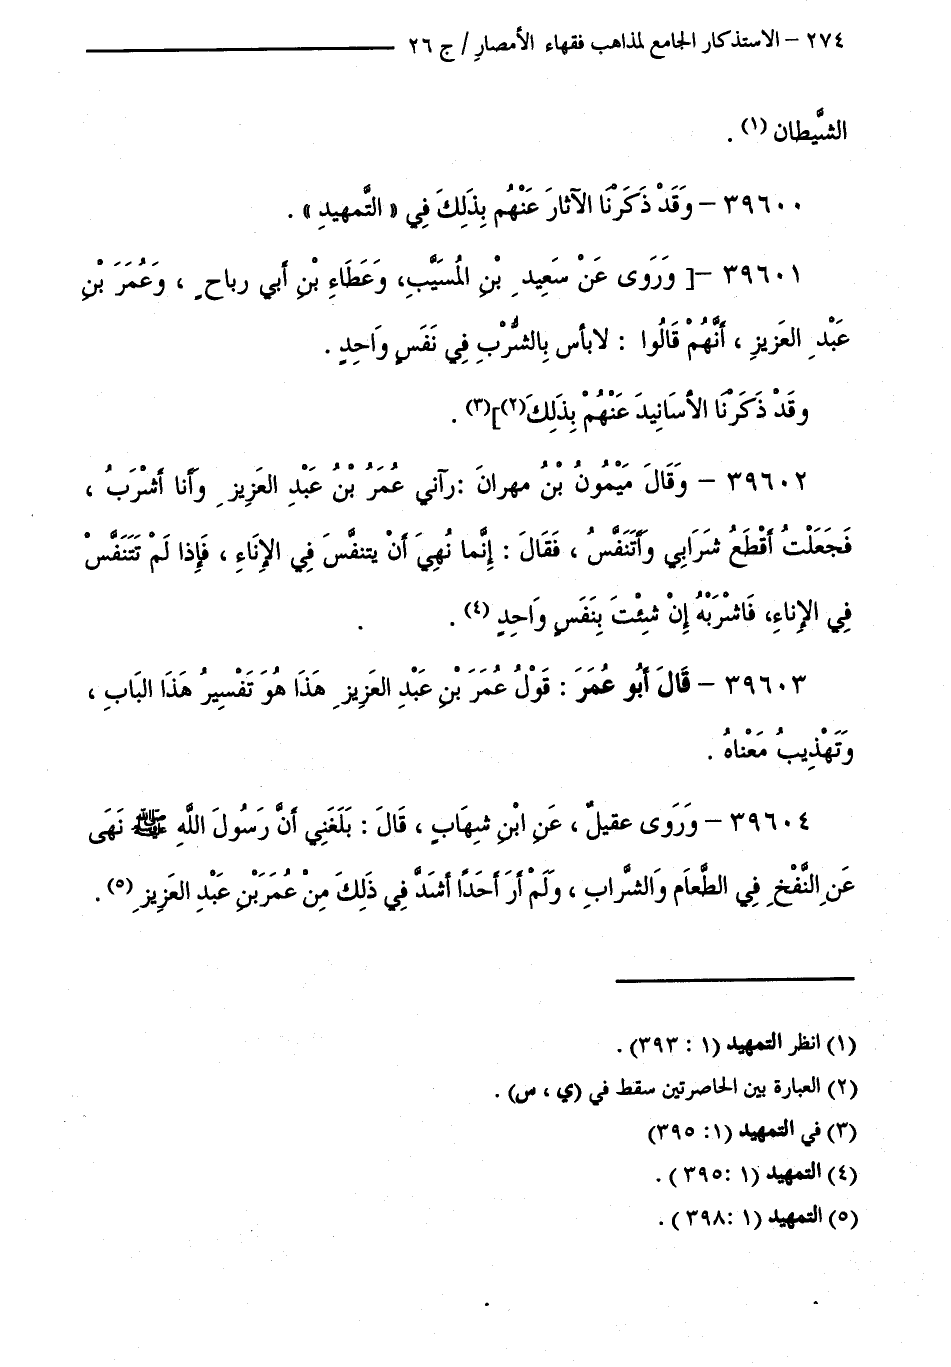 ٢٧٤ – الاستذكار الجامع لمذاهب فقهاء الأمصار / ج ٢٦
الشَّيطان (١) .
٣٩٦٠٠ – وَقَدْ ذَكَرْنَا الآثارَ عَنْهُم بِذَلِكَ فِي « التَّمهيدِ » .
٣٩٦٠١ –[ وَرَوى عَنْ سَعِيدِ بْنِ المُسَيَّبِ، وَعَطَاءِ بْنِ أبي رباحٍ ، وَعُمَرَ بْنِ
عَبْدِ العَزيزِ ، أَنَّهُمْ قَالُوا : لابأس بِالشُّرْبِ فِي نَفَسٍ وَاحدٍ .
وقَدْ ذَكَرْنَا الأسَانِيدَ عَنْهُمْ بِذَلِكَ(٢)](٣) .
٣٩٦٠٢ – وَقَالَ مَيْمُونُ بْنُ مهرانَ :رآني عُمَرُ بْنُ عَبْدِ العَزِيزِ وَأَنا أَشْرَبُ ،
فَجَعَلْتُ أقْطَعُ شَرَابِي وَأَتَنَفَّسُ ، فَقَالَ : إِنَّما نُهِيَ أَنْ يتنفَّسَ فِي الإِنَاءِ ، فَإِذا لَمْ تَتَنَفَّسْ
فِي الإِناءِ، فَاشْرَبْهُ إِنْ شِئْتَ بِنَفَسٍ وَاحِدٍ (٤) .
٣٩٦٠٣ – قَالَ أَبُو عُمَرَ : قَوْلُ عُمَرَ بْنِ عَبْدِ العَزيزِ هَذَا هُوَ تَفْسِيرُ هَذَا البَابِ ،
وَتَهْذِيبُ مَعْناهُ .
٣٩٦٠٤ – وَرَوى عقيلٌ ، عَنِ ابْنِ شهَابٍ ، قَالَ : بَلَغَنِي أَنَّ رَسُولَ اللَّهِ ﷺ نَهَى
عَنِ النَّفْخِ فِي الطَّعاَمِ وَالشَّرابِ ، وَلَمْ أرَ أحَدًا أشَدَّ فِي ذَلِكَ مِنْ عُمَرَبْنِ عَبْدِ العَزِيزِ (٥) .
(١) انظر التمهيد (١ : ٣٩٣) .
(٢) العبارة بين الحاصرتين سقط في (ي ، س) .
(٣) في التمهيد (١: ٣٩٥)
(٤) التمهيد (١ :٣٩٥ ) .
(٥) التمهيد (١ :٣٩٨ ) .